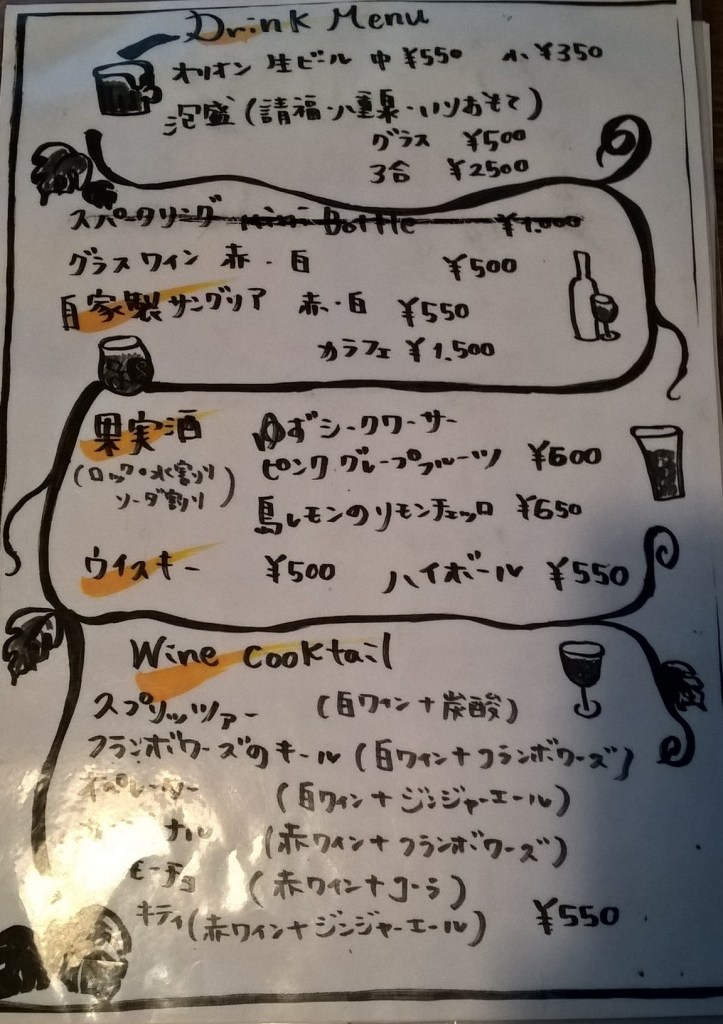 Drink Menu
オリオン 生ビール 中 ¥550 小 ¥350
泡盛(請福・八重泉・いりおもて)
グラス ¥500
3合 ¥2500
スパークリング mini Bottle ¥1.000
グラスワイン 赤・白 ¥500
自家製サングリア 赤・白 ¥550
カラフェ ¥1.500
果実酒 ゆずシークワーサー
(ロック・水割り ピンクグレープフルーツ ¥600
ソーダ割り)
島レモンのリモンチェッロ ¥650
ウイスキー ¥500 ハイボール ¥550
Wine Cooktail
スプリッツァー (白ワイン+炭酸)
フランボワーズのキール (白ワイン+フランボワーズ)
オペレーター (白ワイン+ジンジャーエール)
ナル (赤ワイン+フランボワーズ)
(赤ワイン+コーラ)
キティ(赤ワイン+ジンジャーエール) ¥550